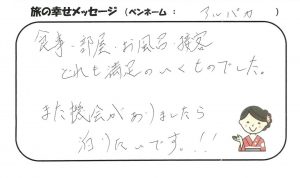 旅の幸せメッセージ (ペンネーム： アルパカ )
食事・部屋・お風呂・接客
どれも満足のいくものでした。
また機会がありましたら
泊りたいです。!!